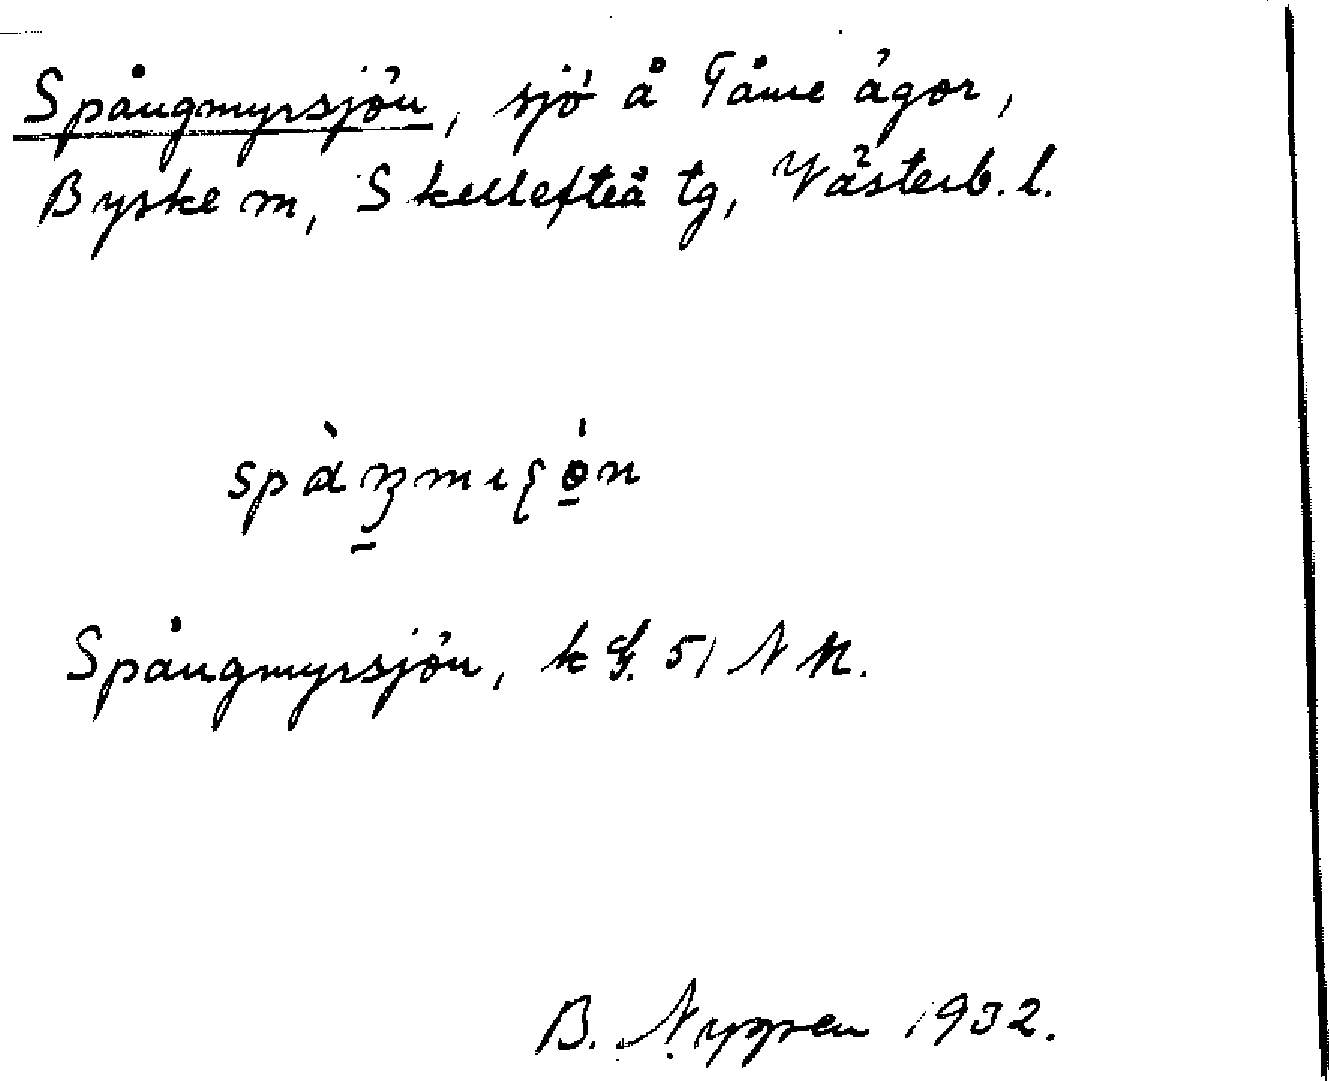 Spångmyrsjön, sjö å Tåme ägor,
Byske sn, Skellefteå tg, Västerb. l.
Spångmyrsjön, k G. 51 N M.
B. Nygren 1932.